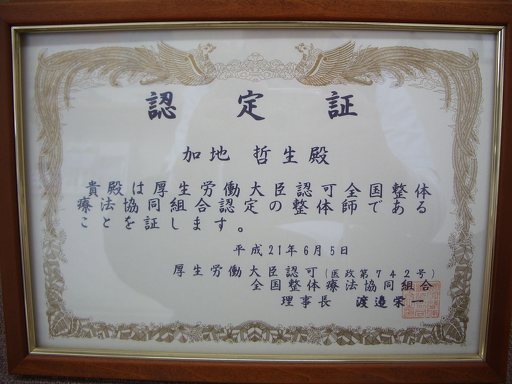 認定証
加地 哲生殿
貴殿は厚生労働大臣認可全国整体
療法協同組合認定の整体師である
ことを証します。
平成21年6月5日
厚生労働大臣認可(医政第742号)
全国整体療法協同組合
理事長 渡邉栄一